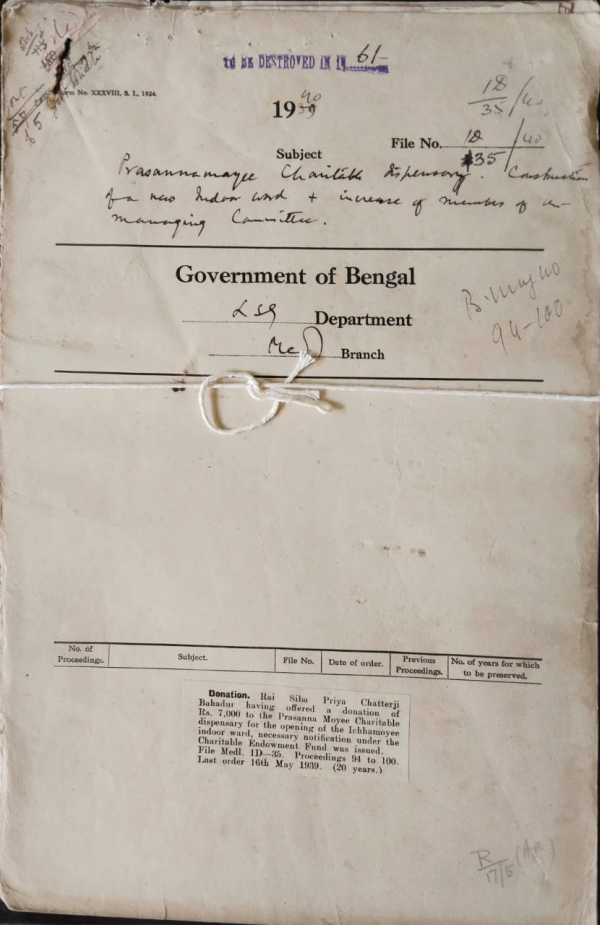 TO BE DESTROYED IN IN 61-
Form No. XXXVIII, S. I., 1924.
1940
1D
35/40
File No. 1D
35/40
Subject
Prasannamayee Charitable dispensary. Construction
of a new Indoor ward + increase of member of the
managing Committee.
Government of Bengal
LSG Department
Medl Branch
B. May 40
94-100
No. of Proceedings.
Subject.
File No.
Date of order.
Previous Proceedings.
No. of years for which to be preserved.
Donation. Rai Siba Priya Chatterji
Bahadur having offered a donation of
Rs. 7,000 to the Prasanna Moyee Charitable
dispensary for the opening of the Ichhamoyee
indoor ward, necessary notification under the
Charitable Endowment Fund was issued.
File Medl. 1D—35. Proceedings 94 to 100.
Last order 16th May 1939. (20 years.)
R
17/5